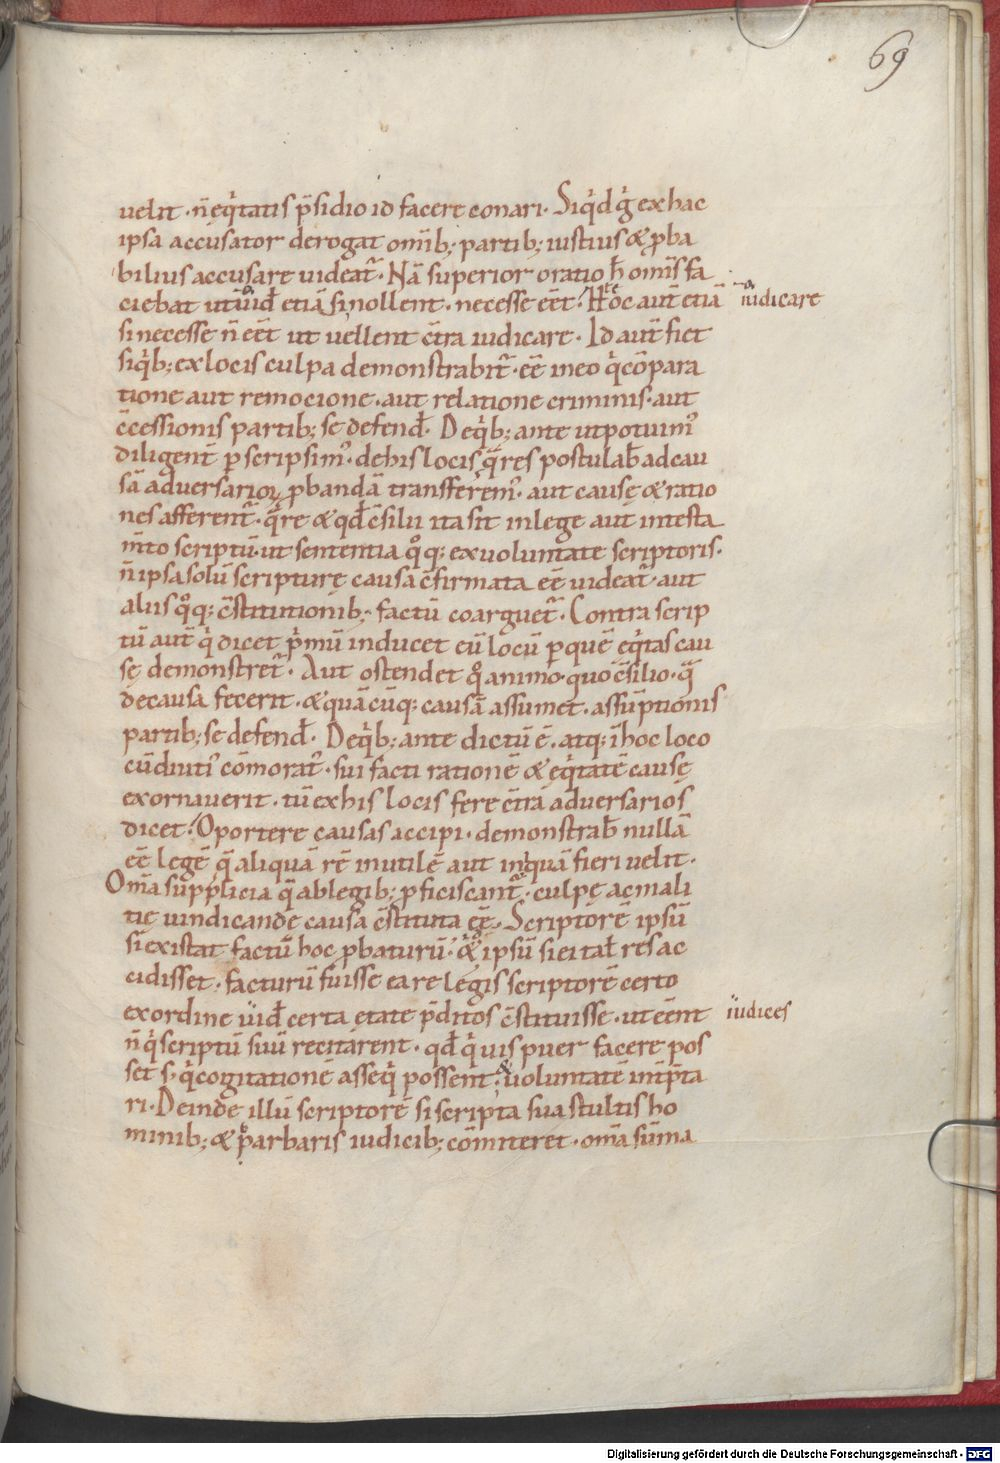 69
velit · n̄ eq̇tatis p̄sidio id facere conari · Siq̇d ġ ex hac
ipsa accusator derogat om̄ib; partib; iustius & ꝓba
bilius accusare uideat᷑ · Nā superior oratio h̄ om̄is fa
ciebat ut iud̄ etiā si nollent · necesse eēt · Hęc aut̄ etiā
iudicare
si necesse n̄ eēt ut uellent c̄tra iudicare · Id aut̄ fiet
siq̇b; ex locis culpa demonstrabit᷑ · eē in eo q̇ cōpara
tione aut remocione · aut relatione criminis · aut
c̄cessionis partib; se defend̄ · De q̇b; ante ut potuim᷒
diligent̄ ꝑscripsim᷒ · de his locis q̄ res postulab̄ ad cau
sā adversarioꝝ ꝓbandā transferem᷒ · aut causę & ratio
nes afferent᷑ · q̄re & qd̄ c̄silii ita sit in lege aut in testa
m̄to scriptū · ut sententia q̊q; ex voluntate scriptoris ·
n̄ ipsa solū scripturę causa c̄firmata eē uideat᷑ · aut
aliis q̊q; c̄stitutionib; factū coarguet᷑ · Contra scrip
tū aut̄ q̇ dicet ṗmū inducet eū locū ꝑ quē eq̇tas cau
sę demonstret᷑ · Aut ostendet q̊ animo · quo c̄silio · q̄
de causa fecerit · & quācūq; causā assumet · assūptionis
partib; se defend̄ · De q̇b; ante dictū ē · atq; ī hoc loco
cū diuti᷒ cōmorat᷒ · sui facti rationē & eq̇tatē causę
exornauerit · tū ex his locis fere c̄tra adversarios
dicet · Oportere causas accipi · demonstrab̄ nullā
eē legē q̄ aliquā rē inutilē aut iniquā fieri velit ·
Om̄a supplicia q̄ ab legib; ꝓficiscant᷑ · culpę ac mali
tię uindicandę causa c̄stituta eē · Scriptorē ipsū
si existat factū hoc ꝓbaturū · & ipsū si ei tał res ac
cidisset · facturū fuisse ea re legis scriptorē certo
ex ordine iud̄ certa ętate p̄ditos c̄stituisse · ut eēnt
iudices
n̄ q̇ scriptū suū recitarent · qd̄ q̇uis puer facere pos
set s; q̇ cogitationē asseq̇ possent · & uoluntatē inīp̄ta
ri · Deinde illū scriptorē si scripta sua stultis ho
minib; & barbaris iudicib; cōmiteret · om̄a sūma
Digitalisierung gefördert durch die Deutsche Forschungsgemeinschaft - DFG